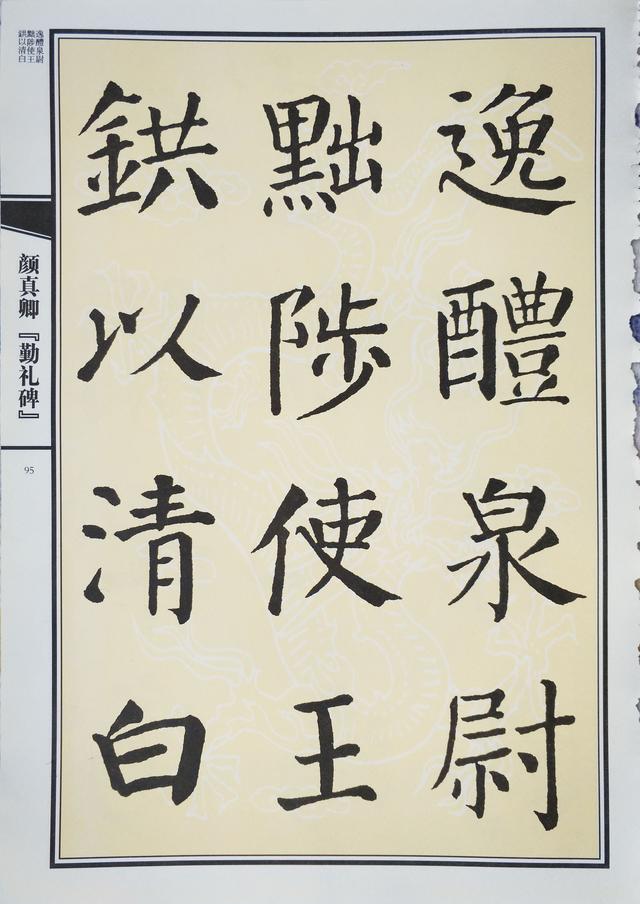 逸醴泉尉
黜陟使王
鉷以清白
逸醴泉尉
黜陟使王
鉷以清白
颜真卿『勤礼碑』
95